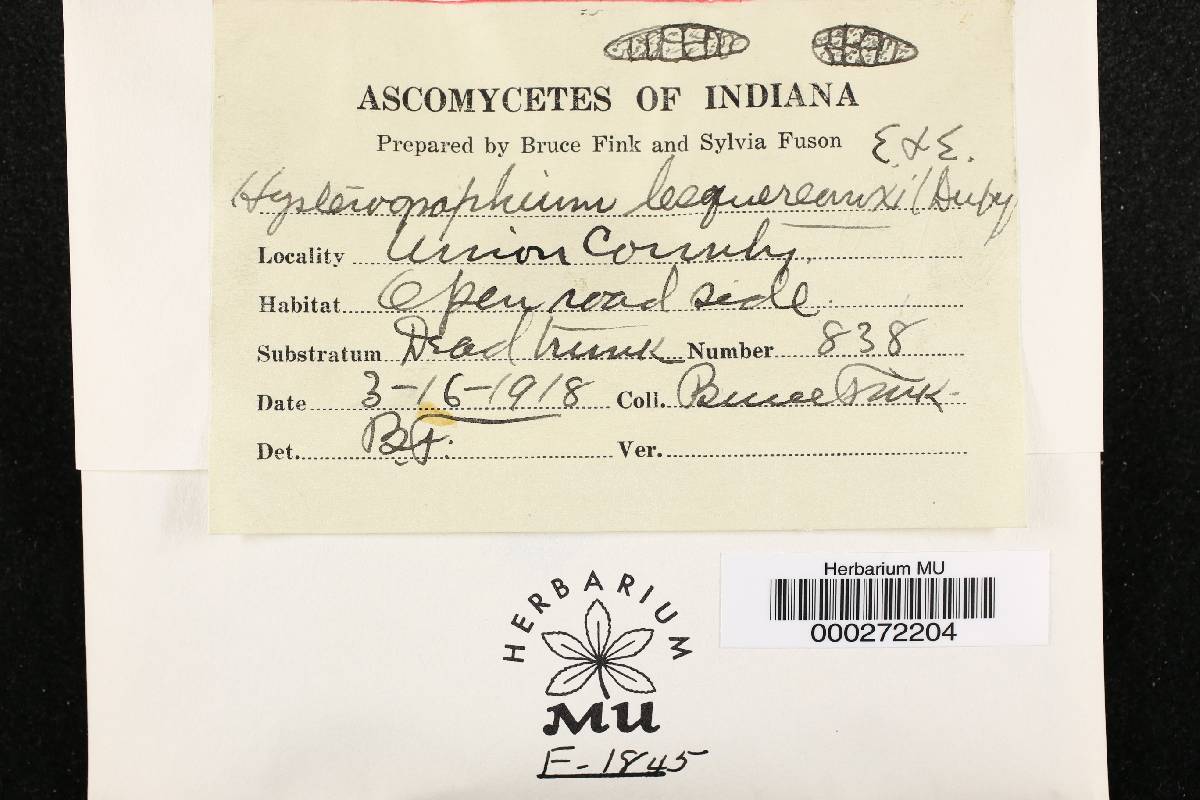 ASCOMYCETES OF INDIANA
Prepared by Bruce Fink and Sylvia Fuson
E & E.
Hysterographium lesquereauxi (Duby
Locality Union County,
Habitat Open road side.
Substratum Dead trunk Number 838
Date 3-16-1918 Coll. Bruce Fink
Det. B.F. Ver.
Herbarium MU
000272204
HERBARIUM
MU
F-1845